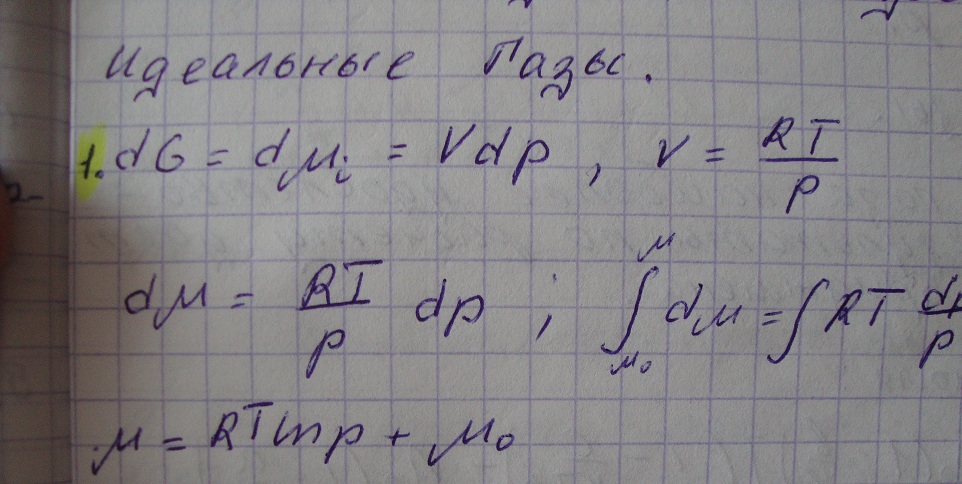 Идеальные Газы.
1. dG = dμᵢ = Vdp , V = RT/p
dμ = RT/p dp ; ∫_{μ₀}^{μ} dμ = ∫ RT dp/p
μ = RT ln p + μ₀